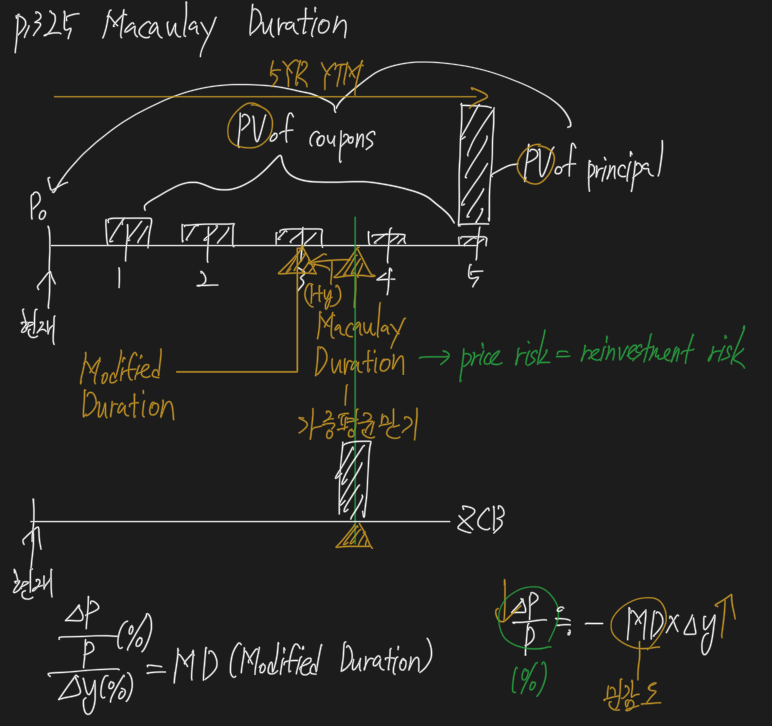 p.325 Macaulay Duration
5YR YTM
PV of coupons
PV of principal
P₀
1 2 3 4 5
현재
(1+y)
Macaulay
Duration
→ price risk = reinvestment risk
Modified
Duration
가중평균만기
ZCB
현재
ΔP/P (%) / Δy(%) = MD (Modified Duration)
↓ ΔP/P ≒ - MD × Δy ↑
(%)
민감도